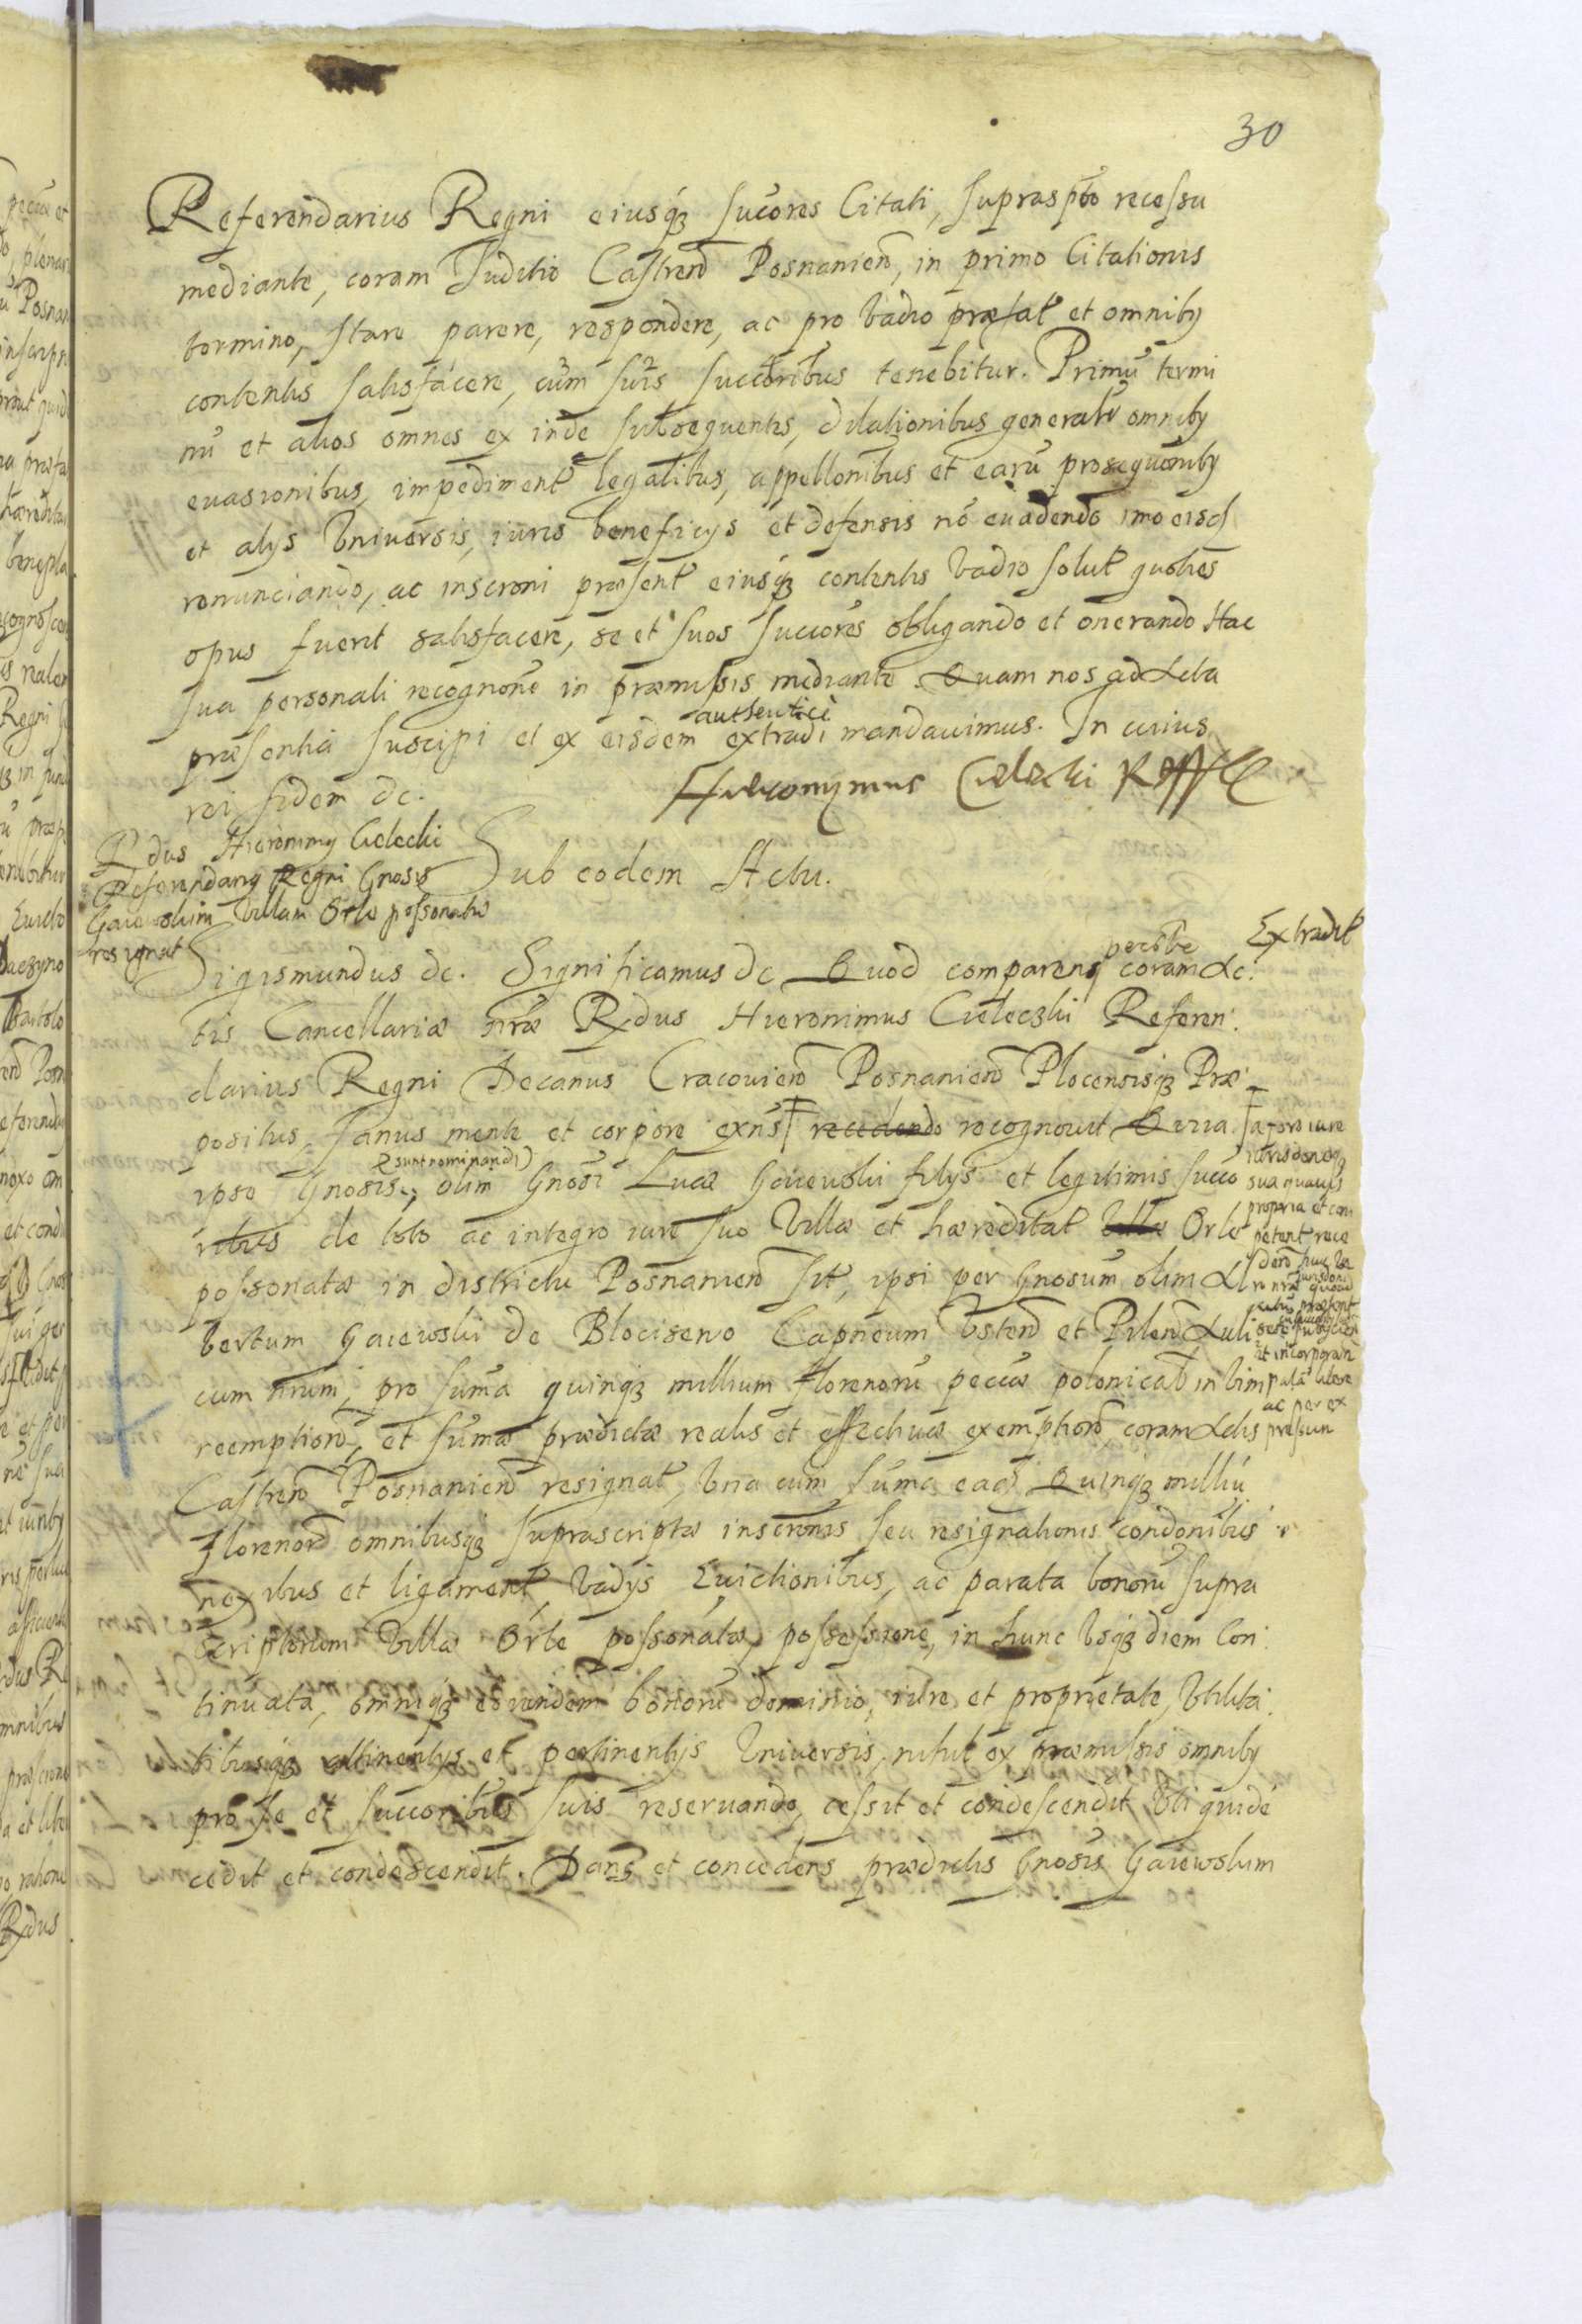 30
Referendarius Regni eiusq; succores Citati, supraspto recessu
mediante, coram Juditio Castren Posnanien, in primo Citationis
termino, stare parere, respondere, ac pro vadio præfat et omnib9
contentis satisfacere, cum suis succoribus tenebitur. Primu termi
nu et alios omnes ex inde subsequentes, dilationibus generalr omnib9
evasionibus, impediment legalibus, appellonibus et earu prosequonib9
et alys Universis, iuris beneficys et defensis no euadendo imo eisd
renunciando, ac inscroni præsent eiusq; contentis vadio solut quoties
opus fuerit satisfacere, se et suos succores obligando et onerando Hac
sua personali recognone in præmissis mediante. Quam nos ad Acta
authentice
præsentia suscipi et ex eisdem extradi mandauimus. In cuius
rei fidem &c.
Hieronymus Cielecki Reff
Rdus Hieronimy Cielecki
Referendary Regni Gnosis
Gaiewskim Villam Orle possonatu
resignat
Sub eodem Actu.
Extradit
perste
Sigismundus &c. Significamus &c Quod comparens coram Ac:
tis Cancellariæ nræ Rdus Hieronimus Cieleczki Referen:
darius Regni Decanus Cracouien Posnanien Plocensisq; Præ:
positus, sanus mente et corpore exns recedendo recognouit Quia
(sunt nominandi)
ipse Gnosis, olim Gnosi Lucæ Gaiewski filys et legitimis succo
ribus de toto ac integro iure suo Villæ et hæreditat Villæ Orle
possonatæ in districtu Posnanien sit, ipsi per Gnosum olim Al
bertum Gaiewski de Blocisewo Capneum Usten et Pilen Auli
cum nrum, pro suma quinq; millium florenoru pecuæ polonical in vim
reemption, et sumæ prædictæ realis et effectiuæ exemption coram Actis
Castren Posnanien resignat, Una cum suma ead Quinq; milliu
florenor omnibusq; suprascriptæ inscronis seu resignationis condonibus
nexibus et ligament, vadys Euictionibus, ac parata bonoru supra
scriptorum Villæ Orle possonatæ, possessione, in hunc usq; diem Con:
tinuata, omniq; eorundem bonoru dominio, iure et proprietate, Utilita:
tibusq; attinentys et pertinentys Universis, nihil ex præmissis omnib9
pro se et succoribus suis reseruando, cessit et condescendit Uti quide
cedit et condescendit. Dans et concedens prædictis Gnosis Gaiewskim
a foro iure
iurisdoneq;
sua quauis
propria et com
petent rece
den huic ve
ro nræ
ac per ex
pressum